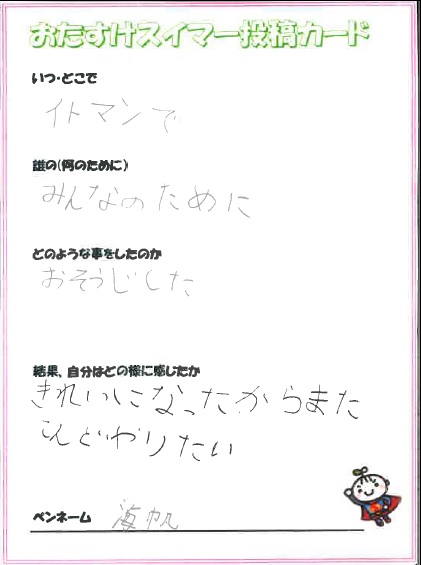 おたすけスイマー投稿カード
いつ・どこで
イトマンで
誰の(何のために)
みんなのために
どのような事をしたのか
おそうじした
結果、自分はどの様に感じたか
きれいになったからまた
こんどやりたい
ペンネーム 海帆